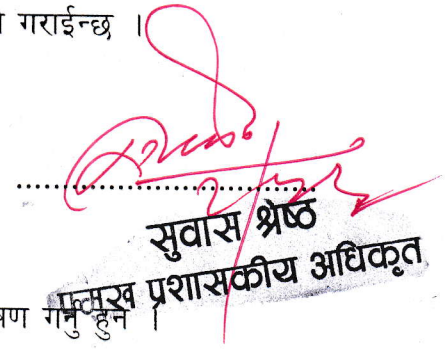 गराईन्छ ।
सुवास श्रेष्ठ
प्रमुख प्रशासकीय अधिकृत
गर्नु हुन ।